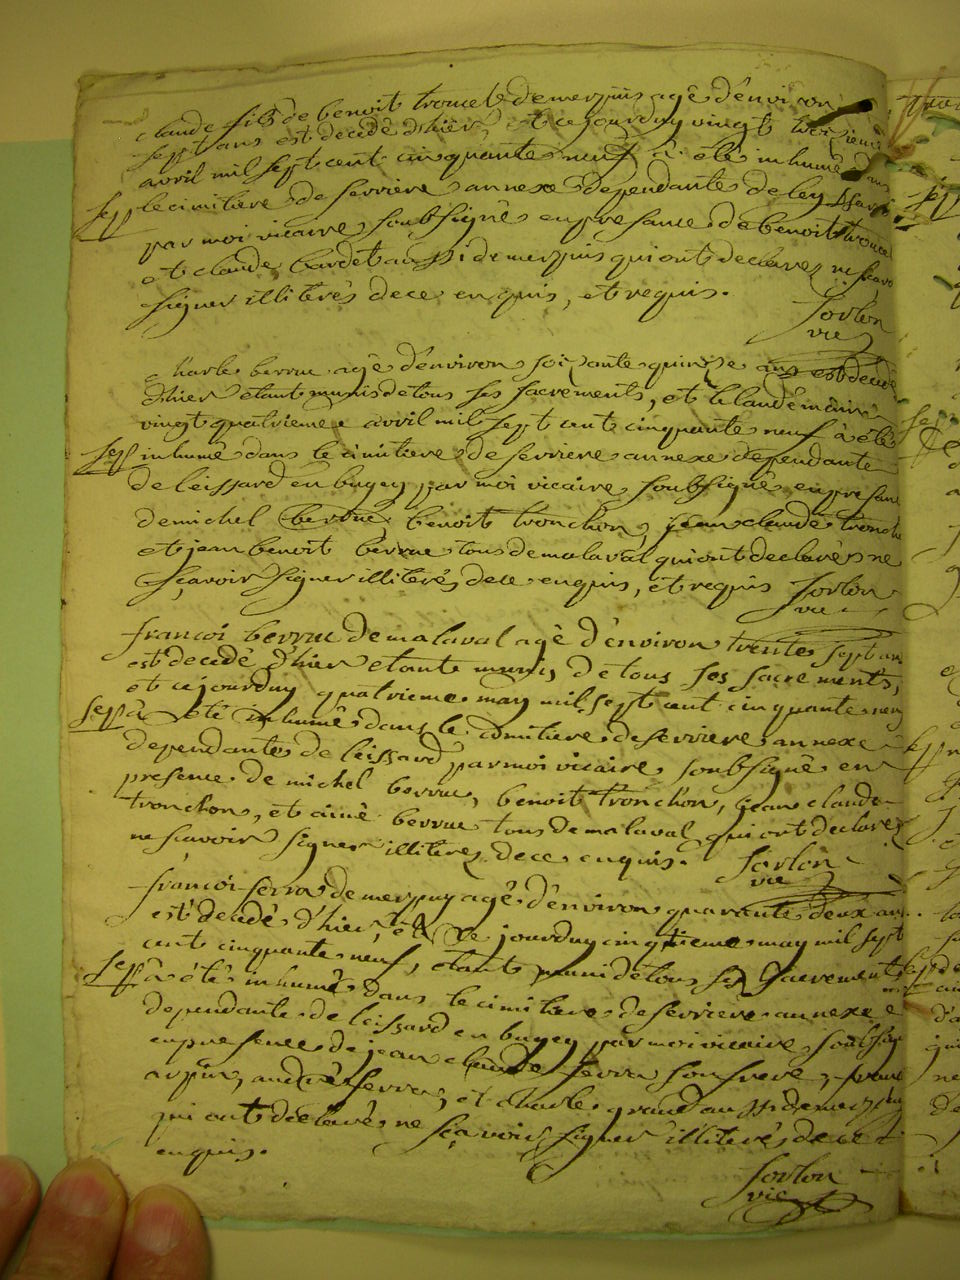 claude fils de benoit troncet demerpuis agê d'environ
sept ans est decedé d'hier, et cejourduy vingt troisieme
avril mil sept cent cinquante neuf à été inhumé dans
sep le cimitiere de serriere annexe dependante de leyssard
par moi vicaire soubsigné en presance de benoit
et claude bardet aussi demerpuis qui ont declarez ne scavoir
signer illiterés de ce enquis, et requis.
sorlon
vic
Charle berrue agê d'environ soixante quinze ans est decedé
d'hier etant munis de tous ses sacrements, et le
vingt quatrieme avril mil sept cent cinquante neuf à été
sep inhumé dans le cimitiere de serriere annexe dependante
de leissard en bugey par moi vicaire soubsigné en presance
de michel berrue benoit tronchon, jean claude tronchon
et jean benoit berrue tous de malaval qui ont declarés ne
sçavoir signer illiterés de ce enquis, et requis sorlon
vic
francoi berrue de malaval agê d'environ trente sept ans
est decedé d'hier etante munis de tous ses sacrements,
et cejourduy quatrieme may mil sept cent cinquante neuf
sep à été inhumé dans le cimitiere de serriere annexe
dependante de leissard par moi vicaire soubsigné en
presence de michel berrue, benoit tronchon, jean claude
tronchon, et aimé berrue tous de malaval qui ont declarez
ne scavoir signer illiterez de ce enquis. sorlon
vic
francoi serra demerpuy agê d'environ quarante deux ans
est decedés d'hier, et ce jourduy cinqtieme may mil sept
cent cinquante neuf, etant muni de tous ses sacrements
sep à été inhumé dans le cimitiere de serriere annexe
dependante de leissard en bugey par moi vicaire soubsigné
en presence de jean claude serra son frere,
andré serra, et charle grand aussi demerpuy
qui ont declarés ne sçavoir signer illiterés de ce
enquis.
sorlon
vic